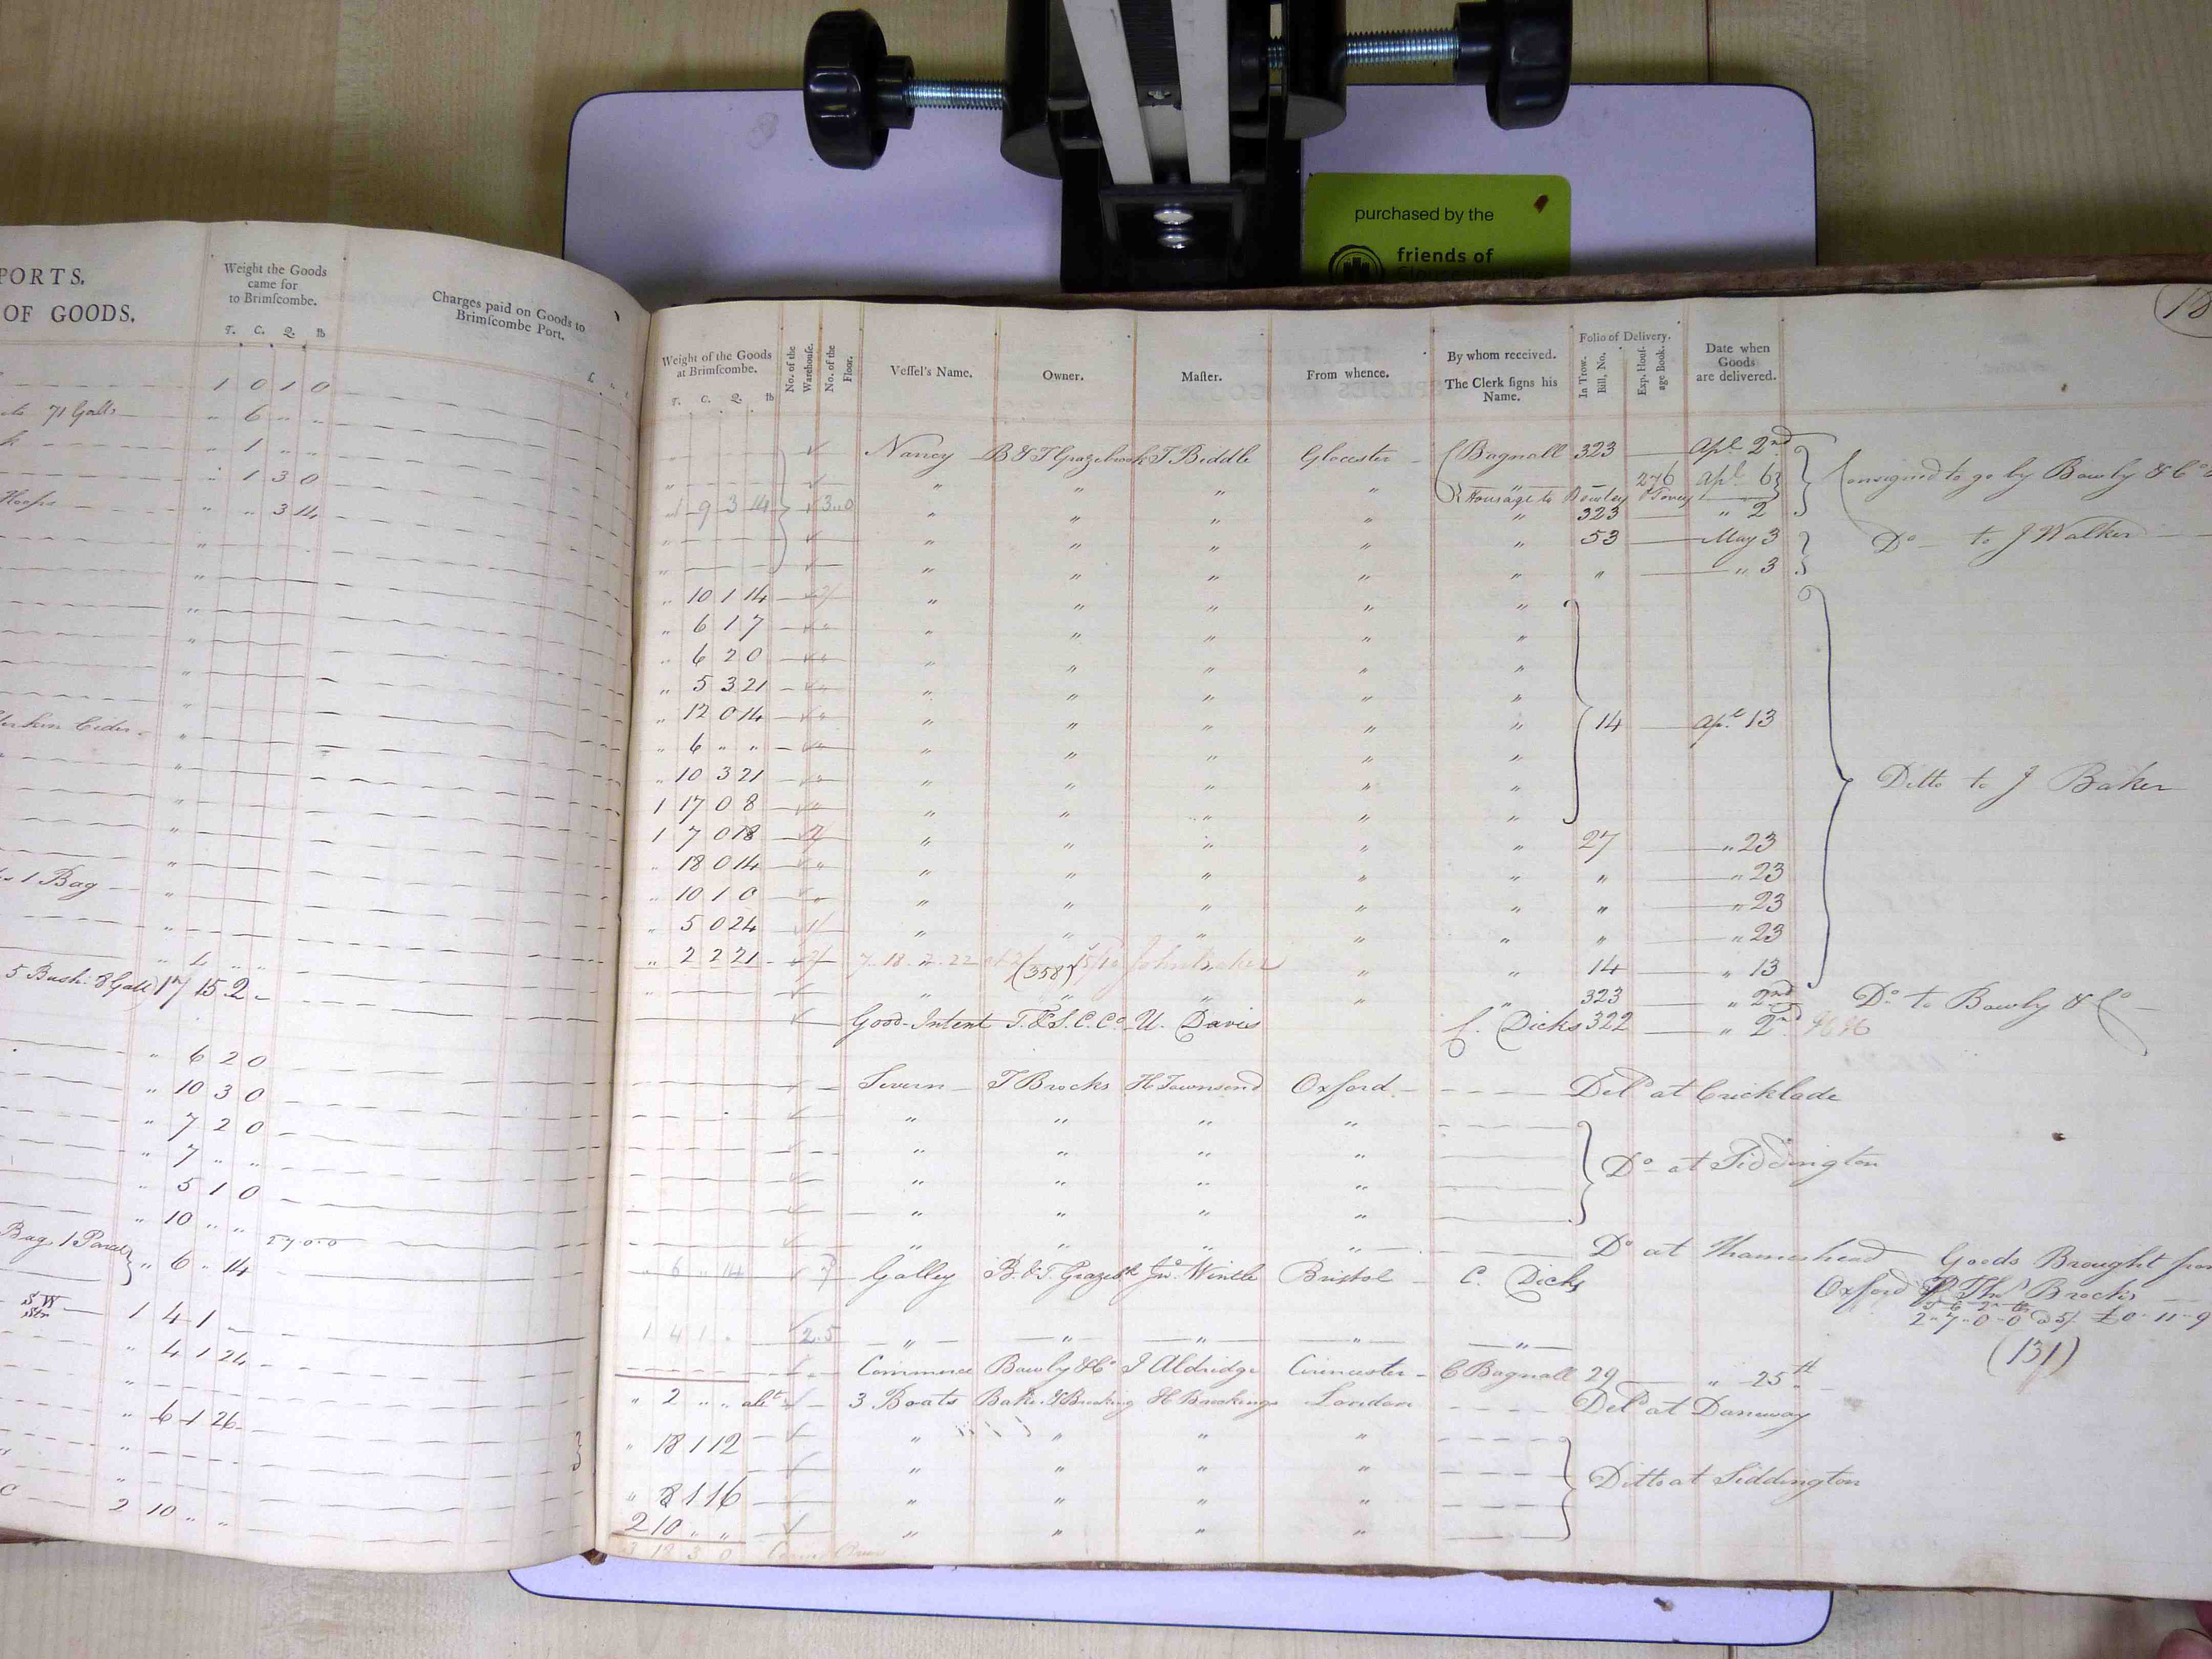 purchased by the
friends of
PORTS.
OF GOODS.
Weight the Goods
came for
to Brimſcombe.
T. C. Q. lb
Charges paid on Goods to
Brimſcombe Port.
1 0 1 0
71 Galls
" 6 " "
" 1 " "
" 1 3 0
Hoops
" " 3 14
Cider
1 Bag
5 Bush. 8 Gall 17 15 2 -
" 6 2 0
" 10 3 0
" 7 2 0
" 7 " "
" 5 1 0
" 10 " "
2 7 0 0
Bag 1 Parcel } " 6 " 14
1 4 1 -
" 4 1 24
" 6 1 26
2 10 " "
Weight of the Goods
at Brimſcombe.
T. C. Q. lb
No. of the
Warehouſe.
No. of the
Floor.
Veſſel's Name.
Owner.
Maſter.
From whence.
By whom received.
The Clerk ſigns his
Name.
Folio of Delivery.
In Trow.
Bill, No.
Exp. Houſ-
age Book.
Date when
Goods
are delivered.
Nancy B & T Grazebrook T Biddle Glocester Bagnall 323 Apl 2nd
" " " " 276 Apl 6
Housage to Bowley & Toney
Consigned to go by Bowly & Co
1 9 3 14 3..0 " " " " " 323 " 2
" " " " " 53 May 3
Do to J Walker
" " " " " " " 3
" 10 1 14 2/ " " " " "
" 6 1 7 " " " " "
" 6 2 0 " " " " "
" 5 3 21 " " " " "
" 12 0 14 " " " " " 14 Apl 13
" 6 " " " " " " "
" 10 3 21 " " " " "
Ditto to J Baker
1 17 0 8 " " " " "
1 7 0 18 2/ " " " " " 27 " 23
" 18 0 14 " " " " " " " 23
" 10 1 0 " " " " " " " 23
" 5 0 24 1/ " " " " " " " 23
" 2 2 21 2/ 7.18.2.22 at 2/ (358) " " 14 " 13
" " " " " 323 " 2nd Do to Bowly & Co
Good-Intent T. & S. C. Co. U. Davis C. Dicks 322 " 2nd
Severn T Brocks H Townsend Oxford Deld at Cricklade
" " " "
" " " "
Do at Siddington
" " " "
" " " "
" " " " Do at Thameshead Goods Brought from
" 6 " 14 Galley B. & T. Grazebk Jno. Wintle Bristol C. Dicks
Oxford P Thos Brocks
2 " 7 " 0 " 0 @ 5/ £0 - 11 - 9
1 4 1 " 2.5 " " " " "
(131)
Commerce Bowly & Co J Aldridge Cirencester C Bagnall 29 " 25th
" 2 " " abt 3 Boats Baker & Brooking H Brookings London Deld at Daneway
" 18 1 12 " " " "
" " " "
Ditto at Siddington
" 8 1 16 " " " "
2 10 " " " " " "
3 18 3 0